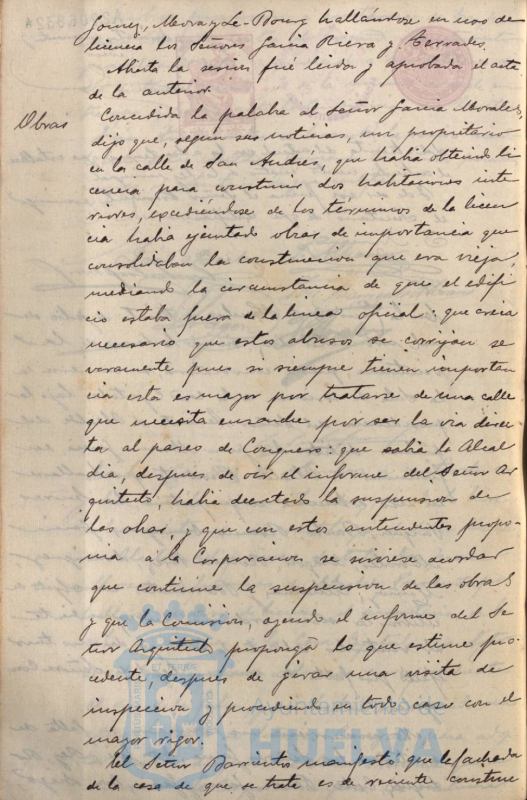 Gomez, Mora y Le-Bourg hallándose en uso de
licencia los Señores Garcia Riera y Terrades.
Abierta la sesion fué leida y aprobada el acta
de la anterior.
Obras
Concedida la palabra al Señor Garcia Morales,
dijo que, segun sus noticias, un propietario
en la calle de San Andrés, que habia obtenido li
cencia para construir dos habitaciones inte
riores, excediéndose de los términos de la licen
cia habia ejecutado obras de importancia que
consolidaban la construccion que era vieja,
mediando la circunstancia de que el edifi
cio estaba fuera de la linea oficial: que creia
necesario que estos abusos se corrijan se
veramente pues si siempre tienen importan
cia esta es mayor por tratarse de una calle
que necesita ensanche por ser la via direc
ta al paseo de Conquero: que sabia la Alcal
dia, despues de oir el informe del Señor Ar
quitecto, habia decretado la suspension de
las obras, y que con estos antecedentes propo
nia á la Corporacion se sirviese acordar
que continúe la suspension de las obras
y que la Comision, oyendo el informe del Se
ñor Arquitecto proponga lo que estime pro
cedente, despues de girar una visita de
inspeccion y procediendo en todo caso con el
mayor rigor.
El Señor Barrientos manifestó que la fachada
de la casa de que se trata es de reciente construc
Ayuntamiento de
HUELVA